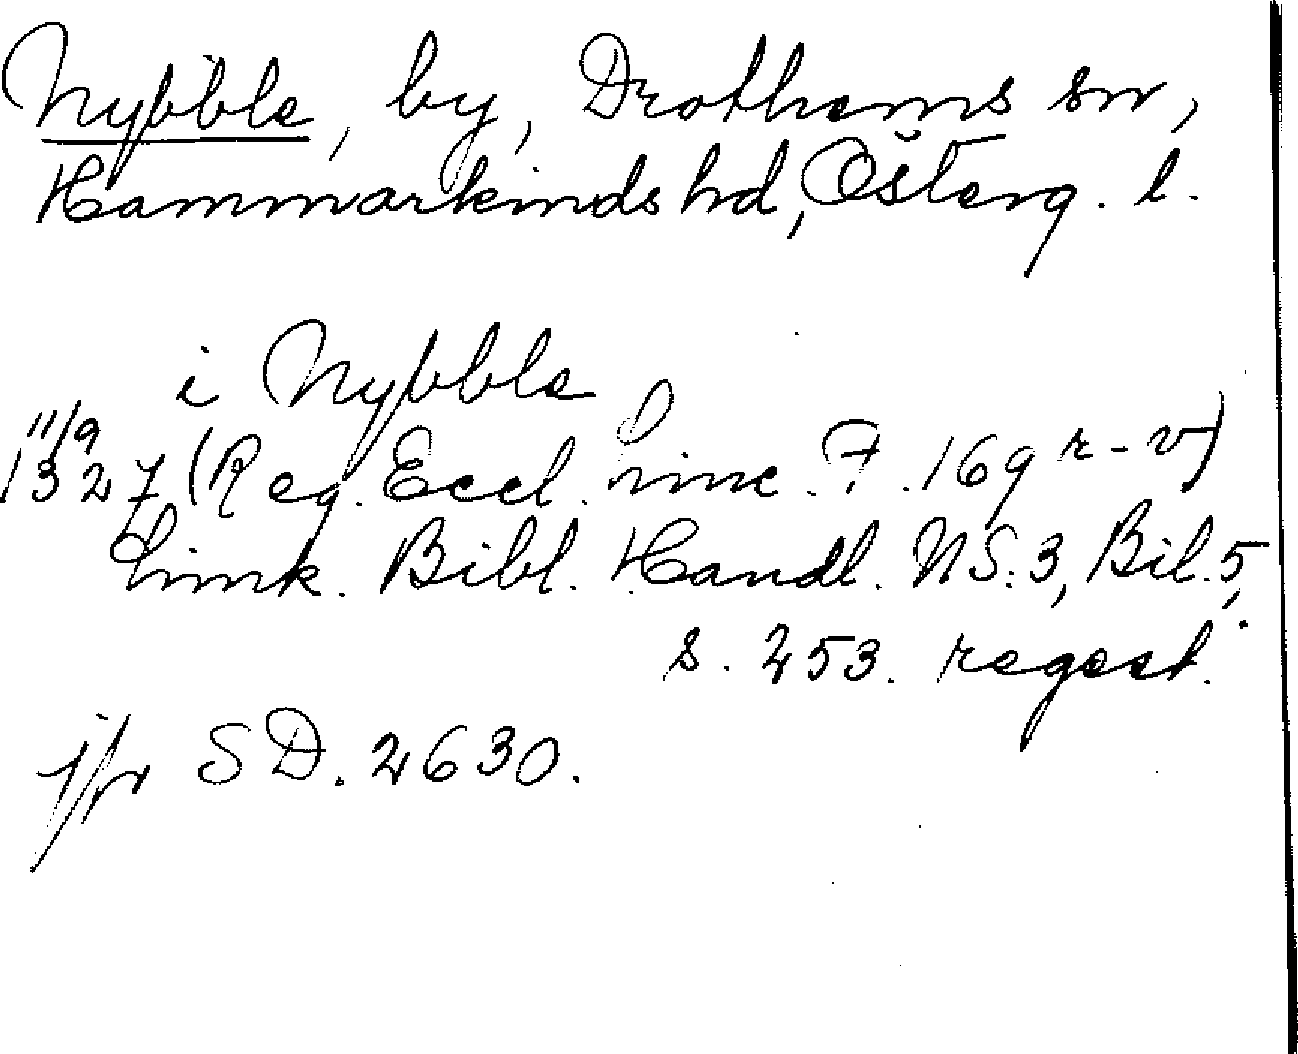 Nybble, by, Drothems sn,
Hammarkinds hd, Österg. l.
i Nybble
11/9
1327 (Reg. Eccl. Linc. F. 169 r-v)
Link. Bibl. Handl. NS. 3, Bil. 5,
s. 253. regest.
jfr SD. 2630.